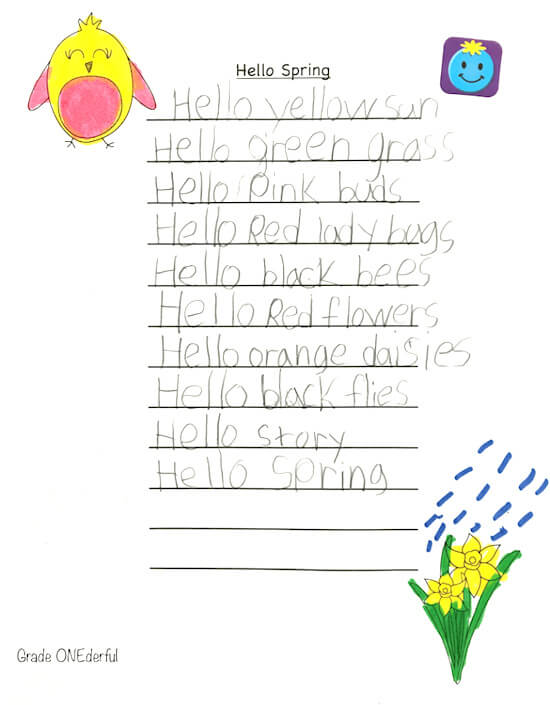 Hello Spring
Hello yellow sun
Hello green grass
Hello Pink buds
Hello Red lady bugs
Hello black bees
Hello Red flowers
Hello orange daisies
Hello black flies
Hello story
Hello Spring
Grade ONEderful